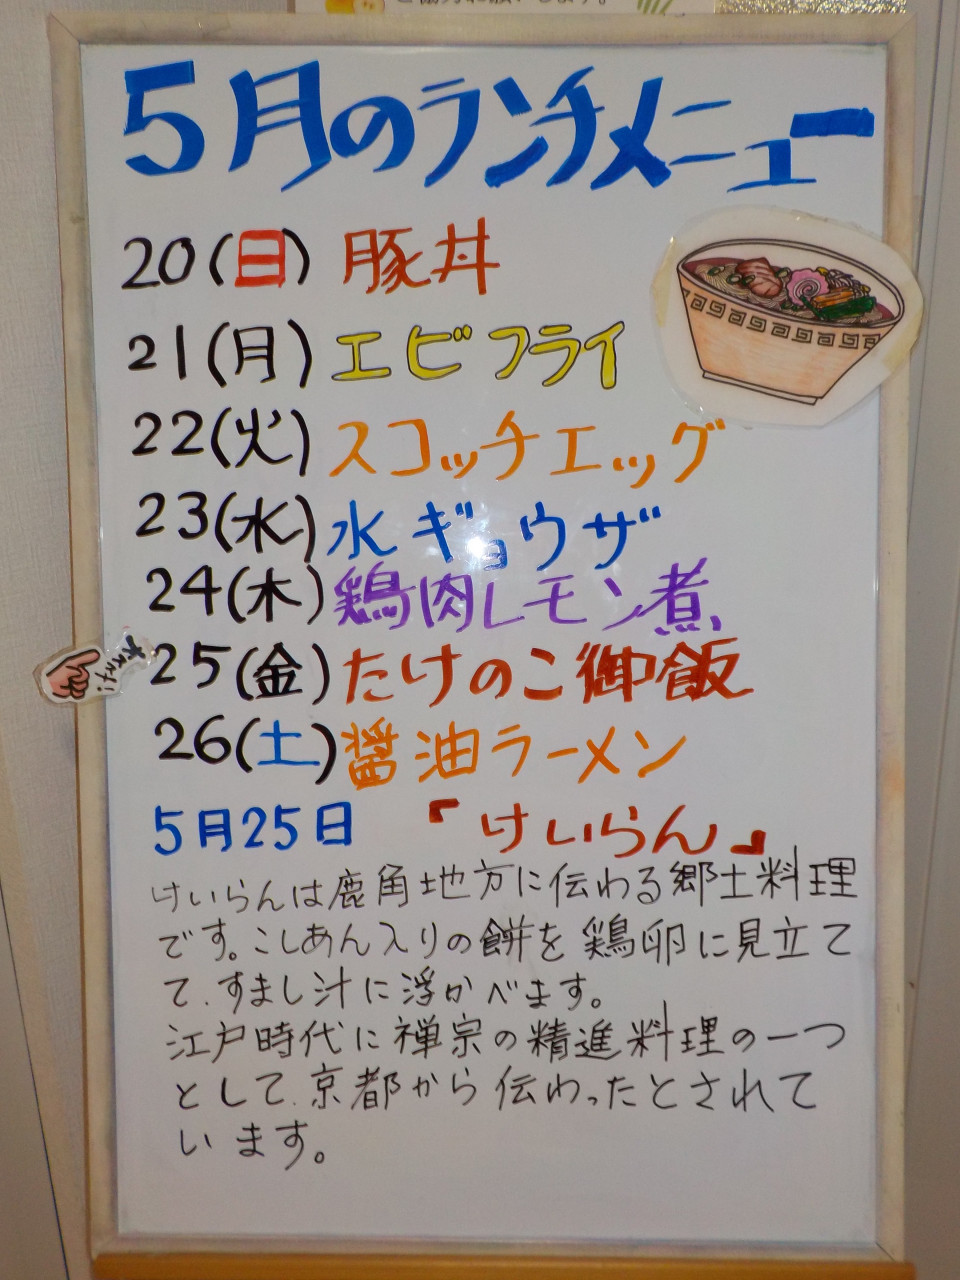 5月のランチメニュー
20(日) 豚丼
21(月) エビフライ
22(火) スコッチエッグ
23(水) 水ギョウザ
24(木) 鶏肉レモン煮
オススメ!
25(金) たけのこ御飯
26(土) 醤油ラーメン
5月25日 「けいらん」
けいらんは鹿角地方に伝わる郷土料理
です。こしあん入りの餅を鶏卵に見立て
て、すまし汁に浮かべます。
江戸時代に禅宗の精進料理の一つ
として、京都から伝わったとされて
います。